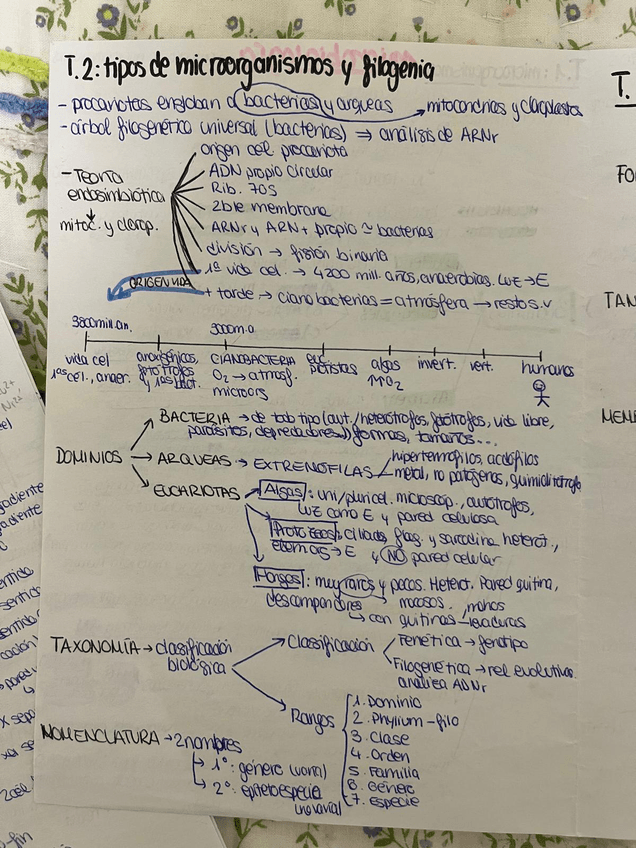 T.2: tipos de microorganismos y filogenia
- procariotas engloban a bacterias y arqueas → mitocondrias y cloroplastos
- árbol filogenético universal (bacterias) ⇒ análisis de ARNr
origen cel. procariota
- Teoría endosimbiótica
mitoc. y clorop.
ADN propio circular
Rib. 70S
2ble membrana
ARNr y ARN+ propio ≃ bacterias
división → fisión binaria
1ª vida cel. → 4200 mill. años, anaerobias. LUZ → E
ORIGEN VIDA
+ tarde → cianobacterias = atmósfera → resto s.v
3800 mill.an.
3000m.a
vida cel
1as cel., anaer.
anoxigénicos,
fotótrofos
y 1as bact.
CIANOBACTERIA
O2 → atmosf.
microors
euc
protistas
algas
↑↑O2
invert.
vert.
humanos
DOMINIOS
BACTERIA → de tob tipo (aut./heterótrofos, fotótrofos, vida libre,
parásitos, depredadores...) formas, tamaños...
ARQUEAS → EXTREMÓFILAS
hipertermófilos, acidófilos
metal, no patógenos, quimiolitótrofo
EUCARIOTAS
Algas: uni/pluricel. microscóp., autótrofos,
LUZ como E y pared celulosa
Protozoos: ciliados, flag. y sarcodina heterót.,
E y NO pared celular
Hongos: muy raros y pocos. Heterot. Pared quitina,
descomponedores
mocosos
mohos
con quitinas
levaduras
TAXONOMÍA → clasificación
biológica
Clasificación
Fenética → fenotipo
Filogenética → rel. evolutivas.
analiza ADNr
Rangos
1. Dominio
2. Phyllium - filo
3. Clase
4. Orden
5. Familia
6. Género
7. Especie
NOMENCLATURA → 2 nombres
1º: género (varía)
2º: epíteto especie
invariable
T.
FO
TAN
MEM